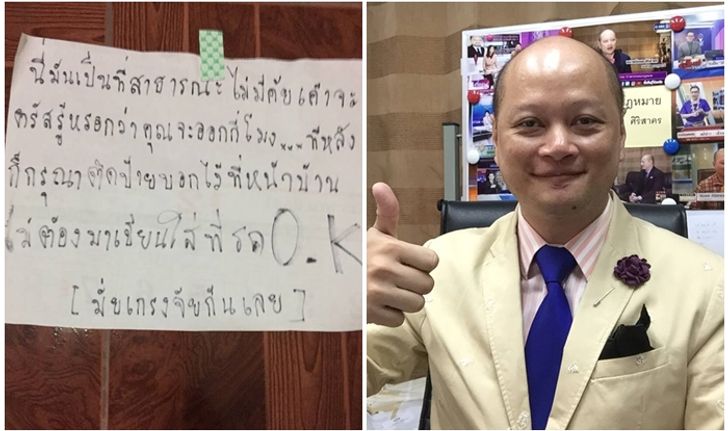 นี่มันเป็นที่สาธารณะ ไม่มีคัยเค้าจะ
ตรัสรู้หรอกว่าคุณจะออกกี่โมง... ทีหลัง
ก็กรุณาติดป้ายบอกไว้ที่หน้าบ้าน
ไม่ต้องมาเขียนใส่ที่รถ O.K
[มั่ยเกรงจัยกันเลย]
กฎหมาย
ศิริสาคร